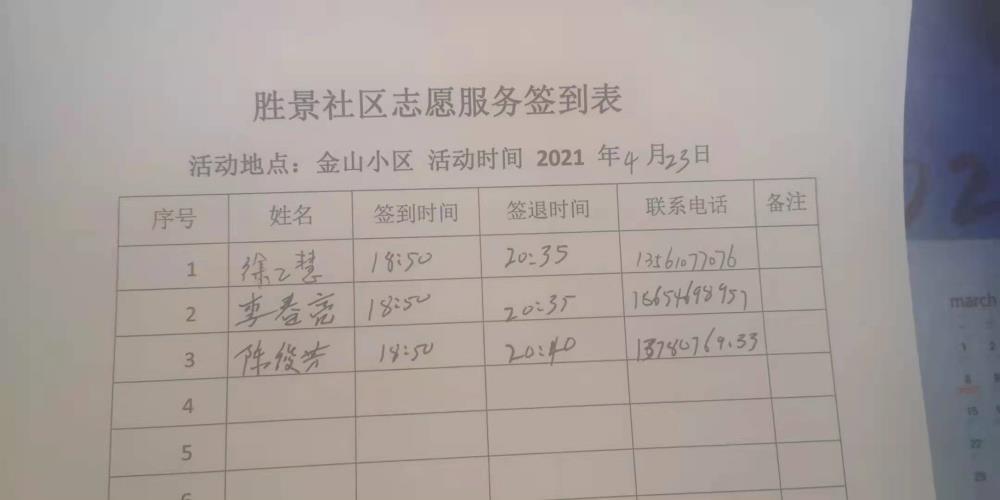 胜景社区志愿服务签到表
活动地点：金山小区 活动时间 2021 年4月23日
序号 姓名 签到时间 签退时间 联系电话 备注
1 徐 慧 18:50 20:35 13561077076
2 李春亮 18:50 20:35
3 陈俊 18:50 20:40
4
5
6
march
1 2
8
15
22
29